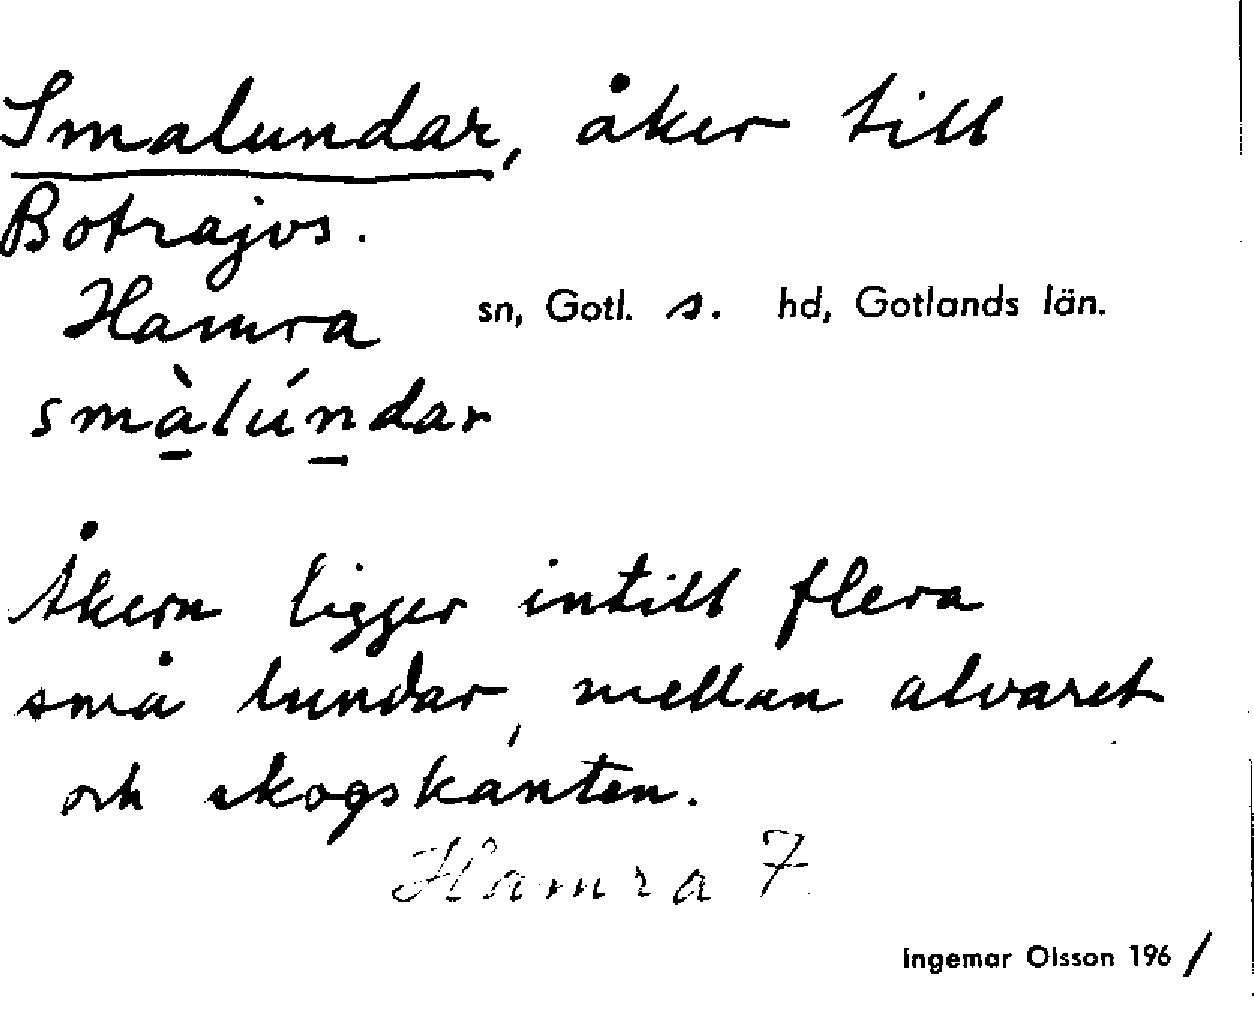 Smalundar, åker till
Botrajvs.
Hamra sn, Gotl. s. hd, Gotlands län.
smà̱lúṉdar
Åkern ligger intill flera
små lundar, mellan alvaret
och skogskanten.
Hamra 7
Ingemar Olsson 196/